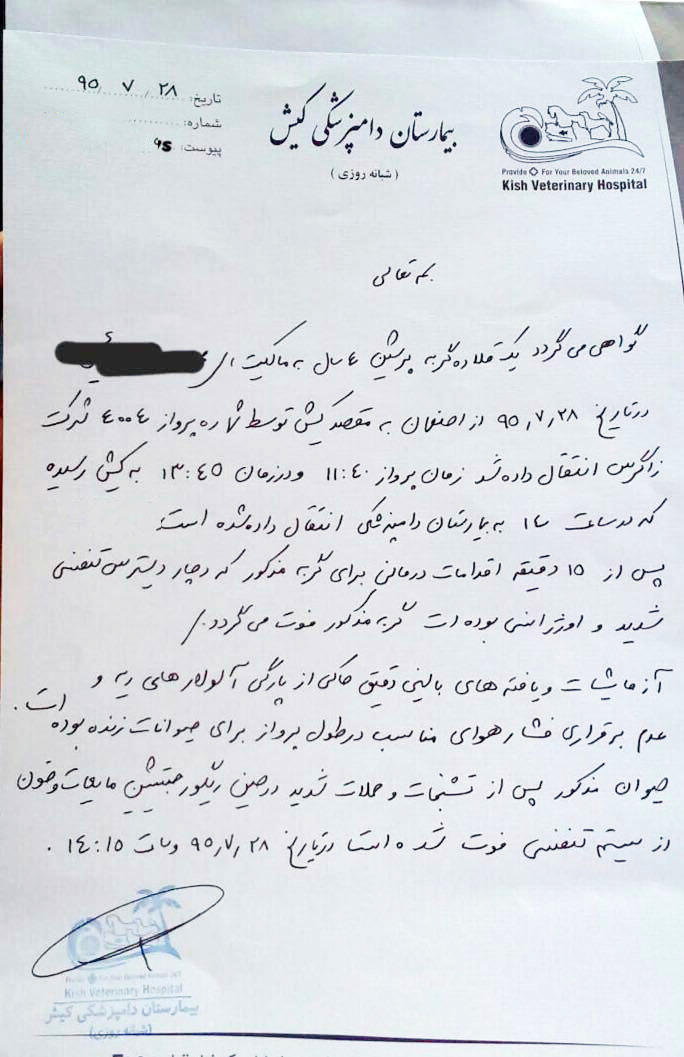 تاریخ: ۹۵/ ۷ / ۲۸
شماره:
پیوست:
بیمارستان دامپزشکی کیش
( شبانه روزی )
Provide For Your Beloved Animals 24/7
Kish Veterinary Hospital
بسمه تعالی
گواهی می گردد یک قلاده گربه پرشین ٤ سال به مالکیت
در تاریخ ۹۵٫۷٫۲۸ از اصفهان به مقصد کیش توسط شماره پرواز ٤۰۰٤ شرکت
زاگرس انتقال داده شد زمان پرواز ۱۱:٤۰ و در زمان ۱۳:٤۵ به کیش رسیده
که در ساعت ۱٤ به بیمارستان دامپزشکی انتقال داده شده است.
پس از ۱۵ دقیقه اقدامات درمانی برای گربه مذکور که دچار دیسترس تنفسی
شدید و اورژانسی بوده است گربه مذکور فوت می گردد./
آزمایشات و یافته های بالینی دقیق حاکی از پارگی آلوئلار های ریه و
عدم برقراری فشار هوای مناسب در طول پرواز برای حیوانات زنده بوده است.
حیوان مذکور پس از تشنجات و حملات شدید در حین مایعات و خون
از سیستم تنفسی فوت شده است در تاریخ ۹۵٫۷٫۲۸ و ساعت ۱٤:۱۵ .
Provide For Your Beloved Animals 24/7
Kish Veterinary Hospital
بیمارستان دامپزشکی کیش
(شبانه روزی)